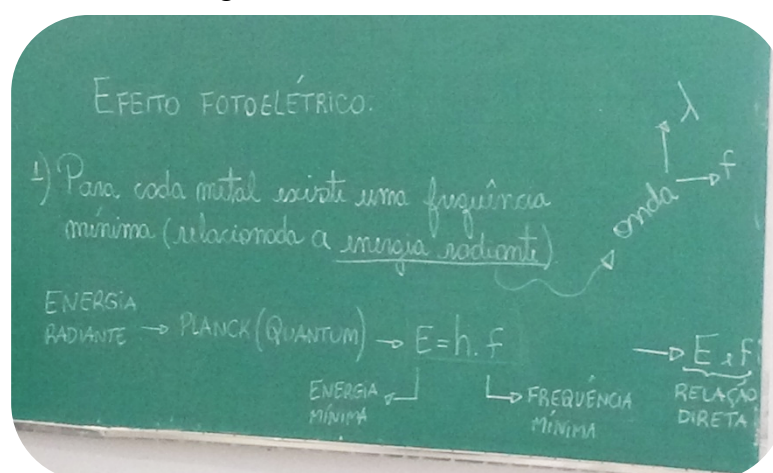 EFEITO FOTOELÉTRICO:
1) Para cada metal existe uma frequência
mínima (relacionada a energia radiante)
onda
λ
f
ENERGIA
RADIANTE → PLANCK (QUANTUM) → E = h . f
ENERGIA
MÍNIMA
FREQUÊNCIA
MÍNIMA
→ E e F
RELAÇÃO
DIRETA